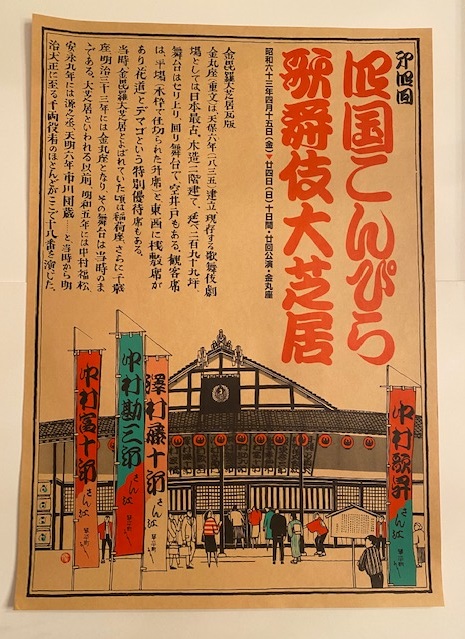 第四回
四国こんぴら
歌舞伎大芝居
昭和六十三年四月十五日(金)▼廿四日(日)十日間・廿回公演・金丸座
金毘羅大芝居瓦版
金丸座(重文)は天保六年(一八三五)建立、現存する歌舞伎劇
場としては日本最古。木造二階建て、延べ二百九十九坪、
舞台はセリ上り、回り舞台で、空井戸もある。観客席
は、平場(木枠で仕切られた升席)と東西に桟敷席が
あり、花道とデマゴという特別優待席もある。
当時、金毘羅大芝居とよばれていた頃は稲荷座、さらに千歳
座、明治三十三年には金丸座となり、その芸は当時のまま
である。大芝居といわれる以前、明和五年には中村福松、
安永九年には源之丞、天明六年市川団蔵……と当時から明
治・大正に至る千両役者のほとんどがここで十八番を演じた。
中村歌昇さん江
澤村藤十郎さん江
中村勘三郎さん江
中村富十郎さん江